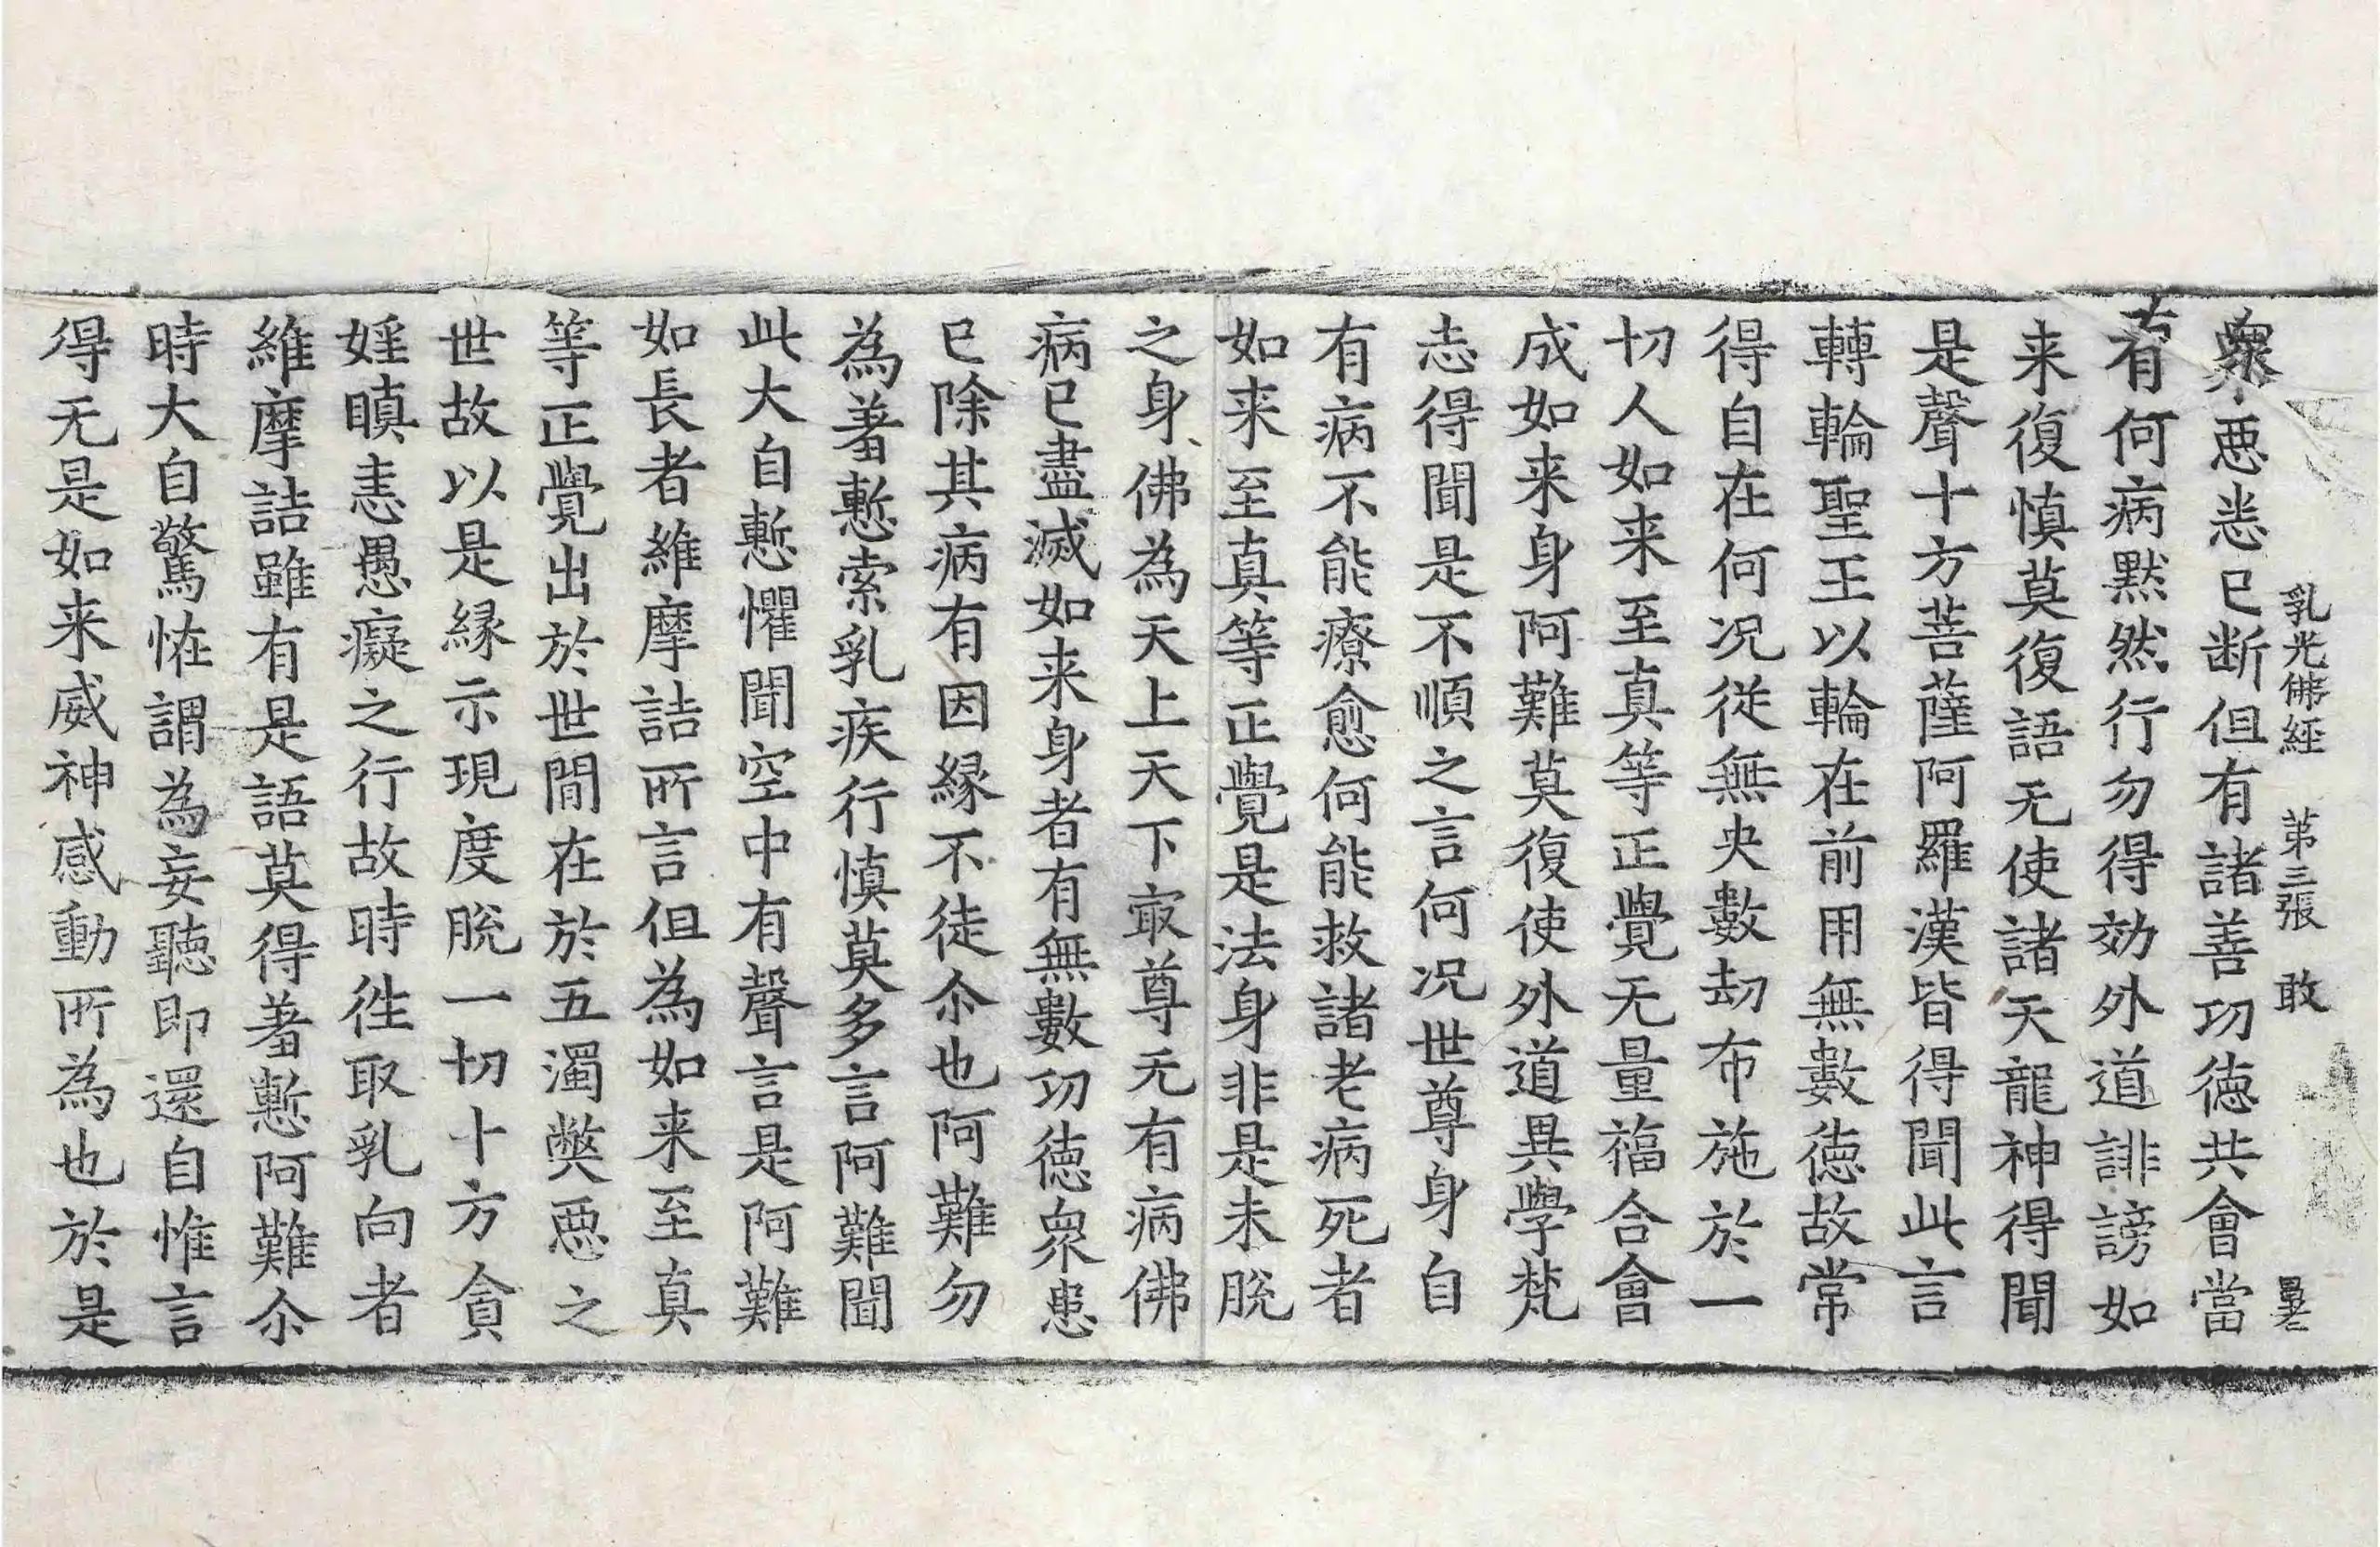 乳光佛經 第三張 敢
衆惡悉已断但有諸善功徳共會當
有何病黙然行勿得効外道誹謗如
来復慎莫復語无使諸天龍神得聞
是聲十方菩薩阿羅漢皆得聞此言
轉輪聖王以輪在前用無數徳故常
得自在何况従無央數劫布施於一
切人如来至真等正覺无量福合會
成如来身阿難莫復使外道異學梵
志得聞是不順之言何况世尊身自
有病不能療愈何能救諸老病死者
如来至真等正覺是法身非是未脫
之身佛為天上天下㝡尊无有病佛
病已盡滅如来身者有無數功徳衆患
已除其病有因縁不徒尒也阿難勿
為著慙索乳疾行慎莫多言阿難聞
此大自慙懼聞空中有聲言是阿難
如長者維摩詰所言但為如来至真
等正覺出於世間在於五濁弊惡之
世故以是縁示現度脫一切十方貪
婬瞋恚愚癡之行故時徃取乳向者
維摩詰雖有是語莫得著慙阿難尒
時大自驚恠謂為妄聽即還自惟言
得无是如来威神感動所為也於是